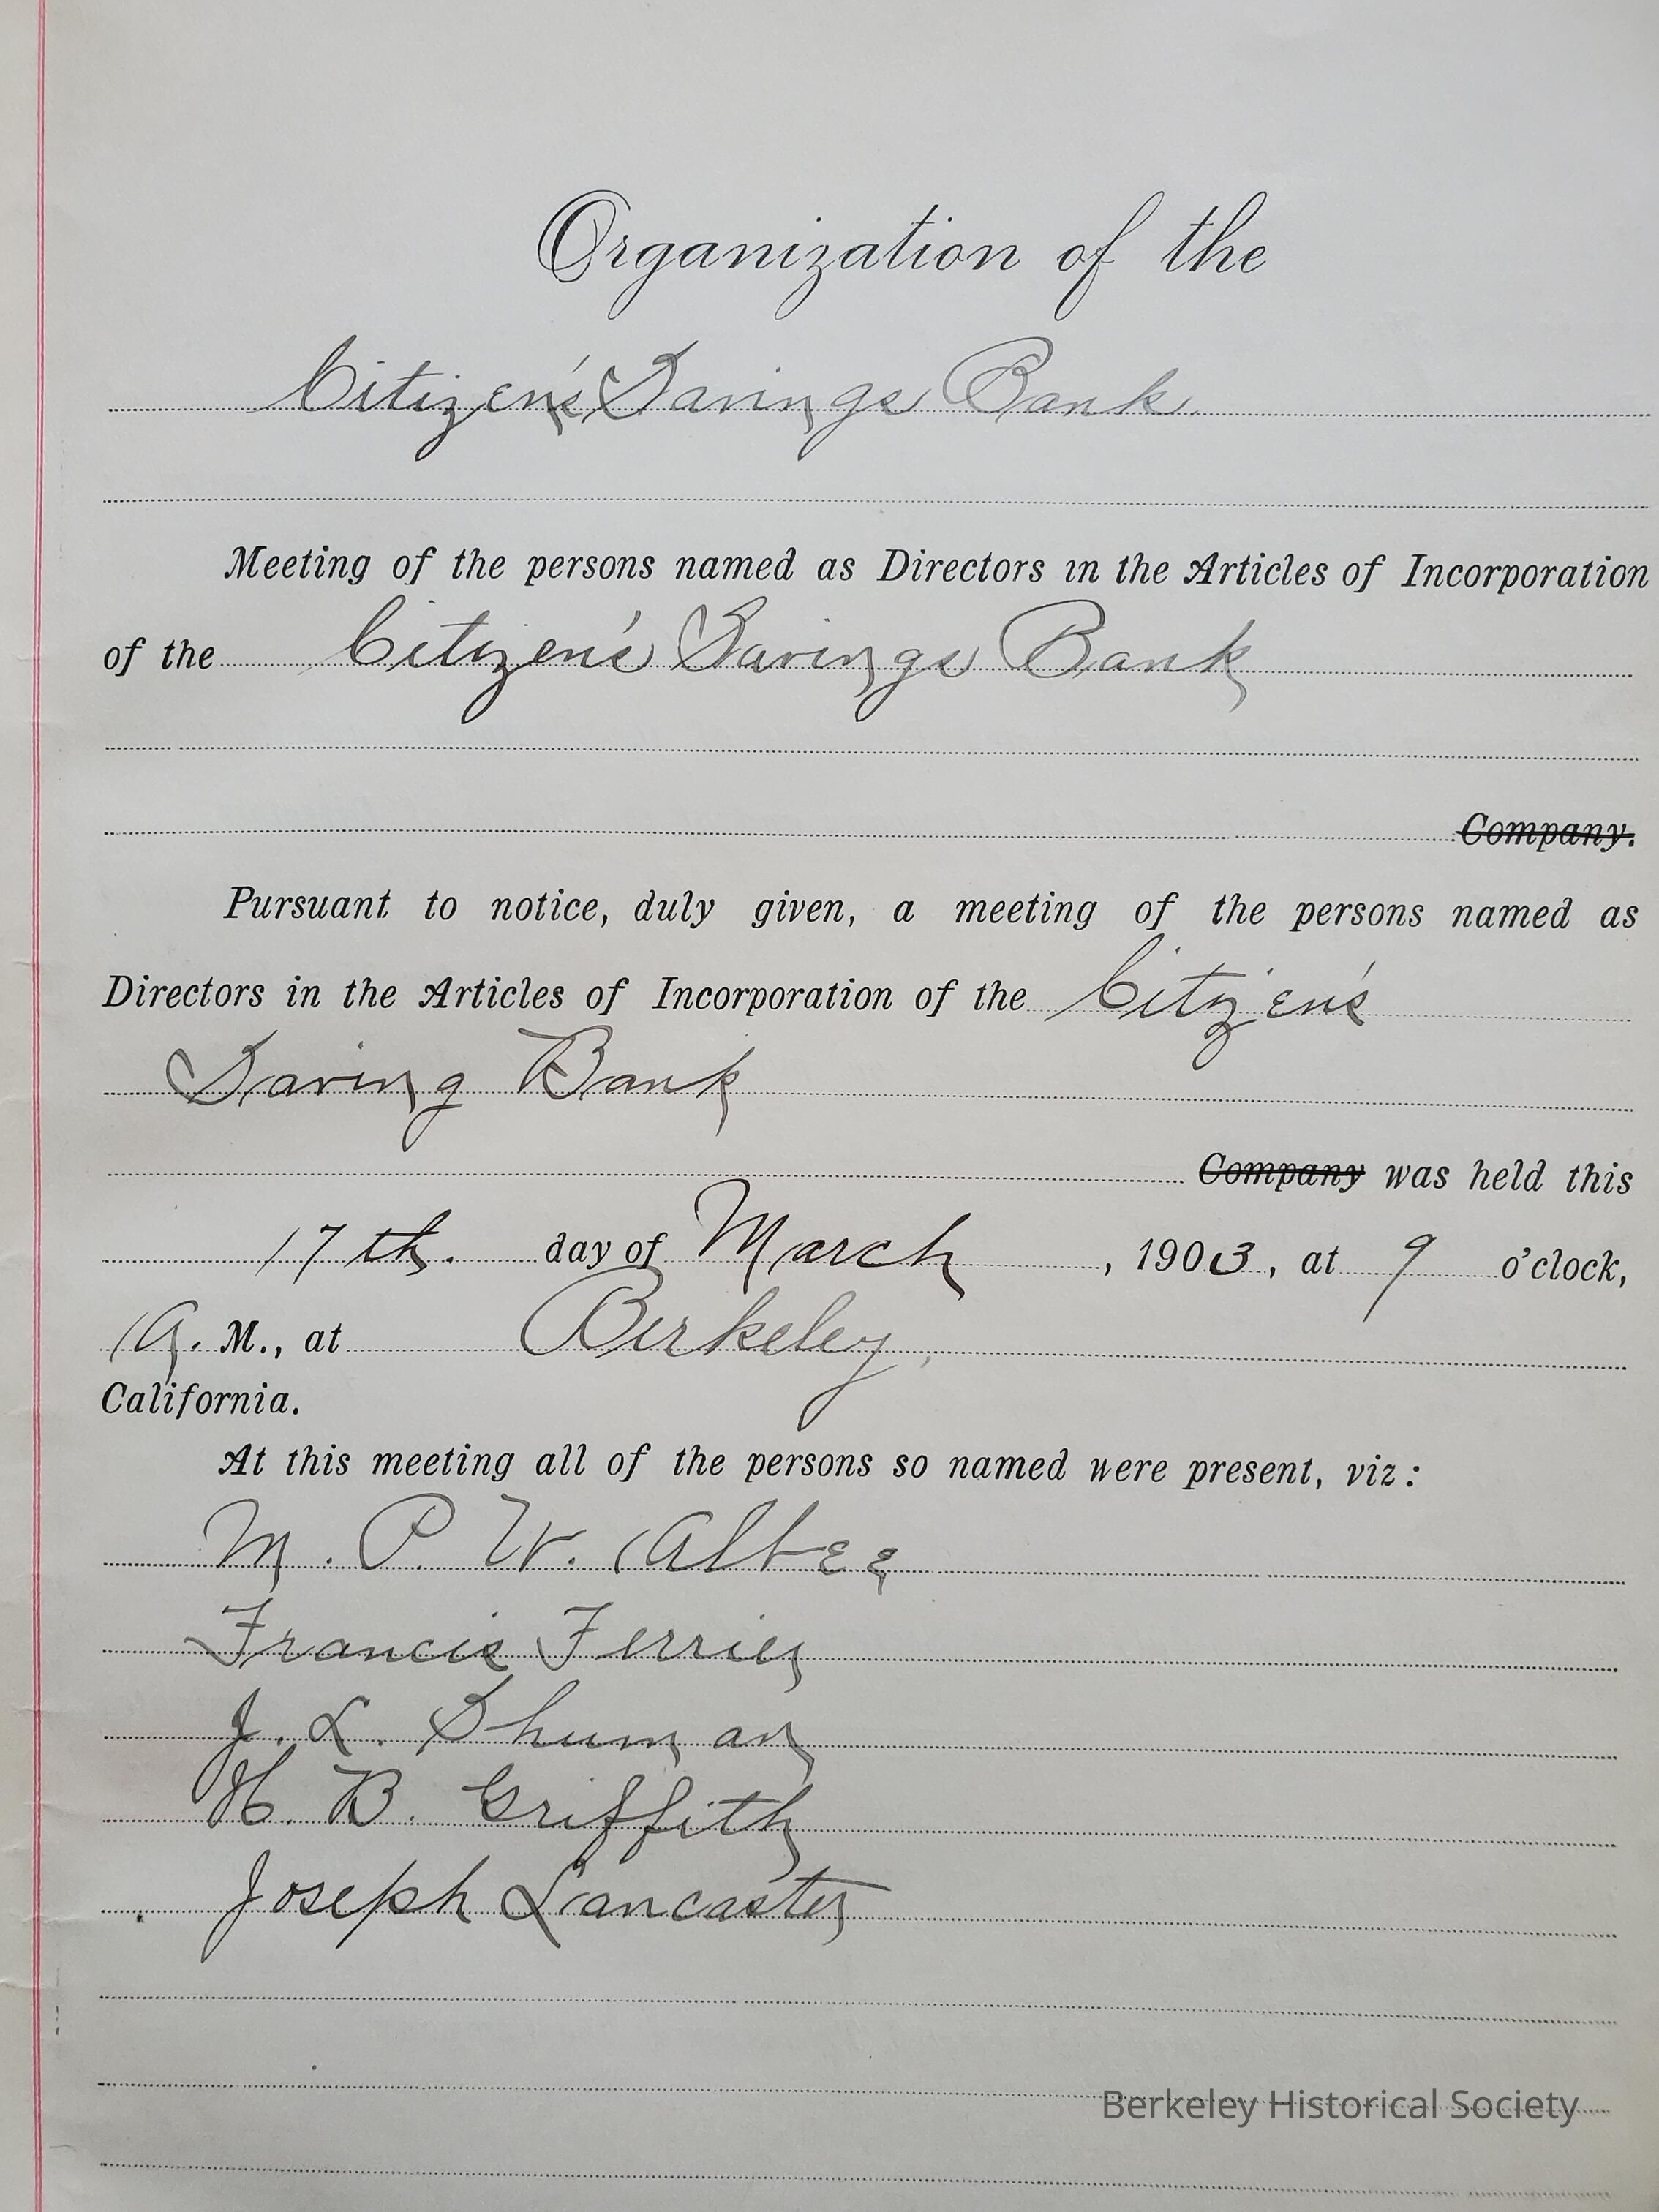 Organization of the
Citizen's Savings Bank.
Meeting of the persons named as Directors in the Articles of Incorporation
of the Citizen's Savings Bank
Company.
Pursuant to notice, duly given, a meeting of the persons named as
Directors in the Articles of Incorporation of the Citizen's
Saving Bank
Company was held this
17th. day of March, 1903, at 9 o'clock,
A. M., at Berkeley,
California.
At this meeting all of the persons so named were present, viz:
M. P. W. Albee
Francis Ferrier
J. L. Shuman
H. B. Griffith
Joseph Lancaster
Berkeley Historical Society